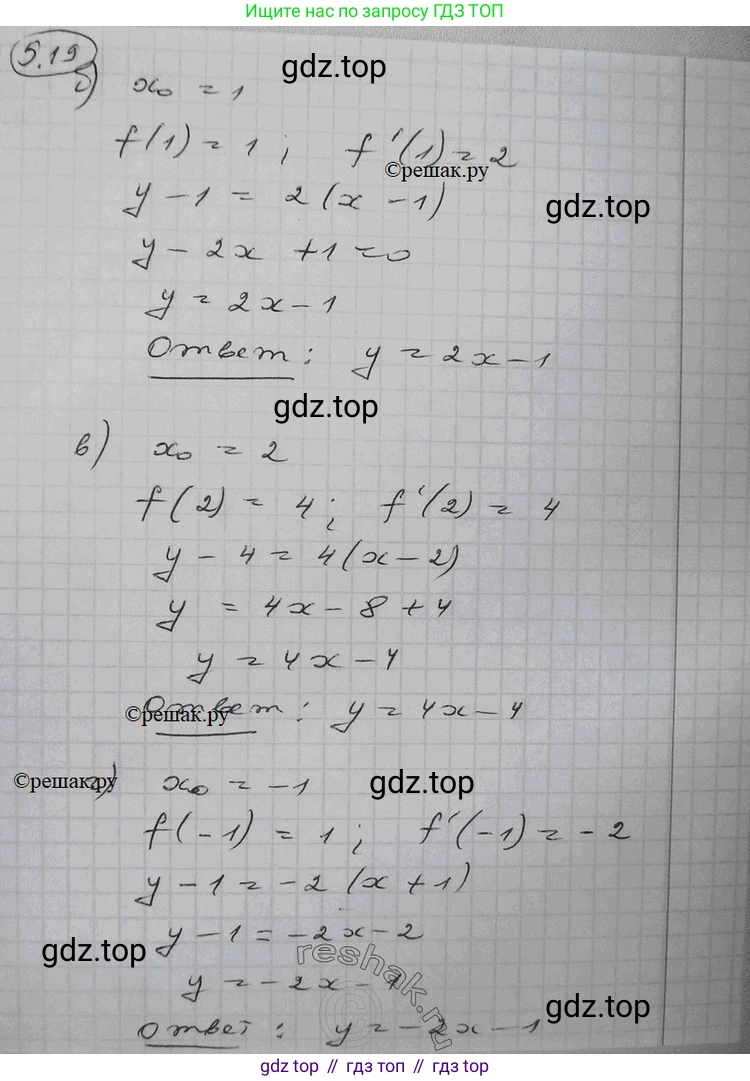 Ищите нас по запросу ГДЗ ТОП
5.19
gdz.top
б) x₀ = 1
f(1) = 1; f'(1) = 2
©решак.ру
y - 1 = 2(x - 1)
gdz.top
y - 2x + 1 = 0
y = 2x - 1
Ответ: y = 2x - 1
gdz.top
в) x₀ = 2
f(2) = 4; f'(2) = 4
y - 4 = 4(x - 2)
y = 4x - 8 + 4
y = 4x - 4
Ответ: y = 4x - 4
©решак.ру
©решак.ру
г) x₀ = -1
gdz.top
f(-1) = 1; f'(-1) = -2
y - 1 = -2(x + 1)
y - 1 = -2x - 2
gdz.top
reshak.ru
y = -2x - 1
gdz.top
Ответ: y = -2x - 1
gdz top // гдз топ // gdz top